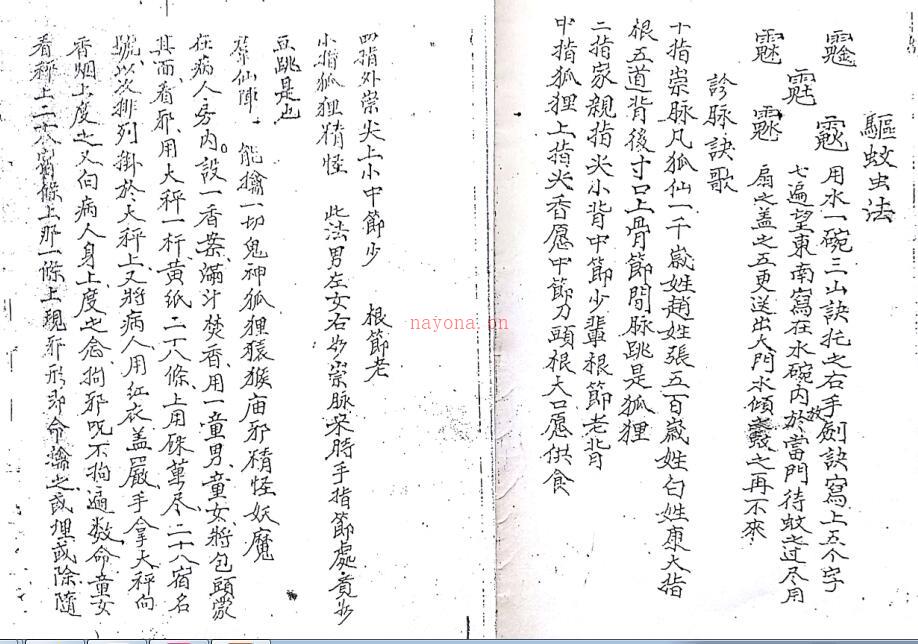 驅蚊虫法
用水一碗三山訣托之右手劍訣寫上五个字
七遍望東南寫在水碗内放於當門待蚊之过尽用
扇之盖之五更送出大門水傾之再不來
診脉訣歌
十指祟脉凡狐仙一千歲姓趙姓張五百歲姓白姓康大指
根五道背後寸口上骨節間脉跳是狐狸
二指家親指尖小背中節少輩根節老背
中指狐狸上指尖香愿中節刀頭根大口愿供食
四指外祟尖上小中節少 根節老
小指狐狸精怪 此法男左女右如祟脉來時手指節處
豆跳是也
仙陣 能擒一切鬼神狐狸猿猴庙邪精怪妖魔
在病人房内設一香案滿斗焚香用一童男童女將包頭蒙
其面看邪用大秤一杆黄紙二十八條上用硃草尽二十八宿名
號以次排列掛於大秤上又將病人用紅衣盖嚴手拿大秤向
香烟上度之又向病人身上度之念拘邪呪不拘遍数命童女
看秤上二十八宿條上那一條上現邪形即命擒之或埋或除隨
nayona.cn